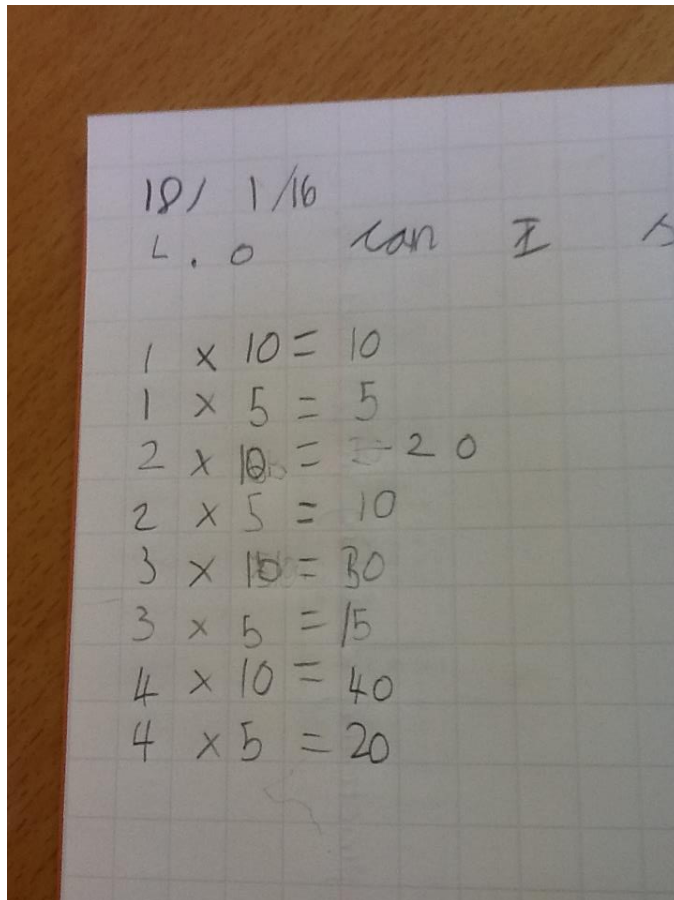 18/ 1/16
L.O can I
1 × 10 = 10
1 × 5 = 5
2 × 10 = 20
2 × 5 = 10
3 × 10 = 30
3 × 5 = 15
4 × 10 = 40
4 × 5 = 20